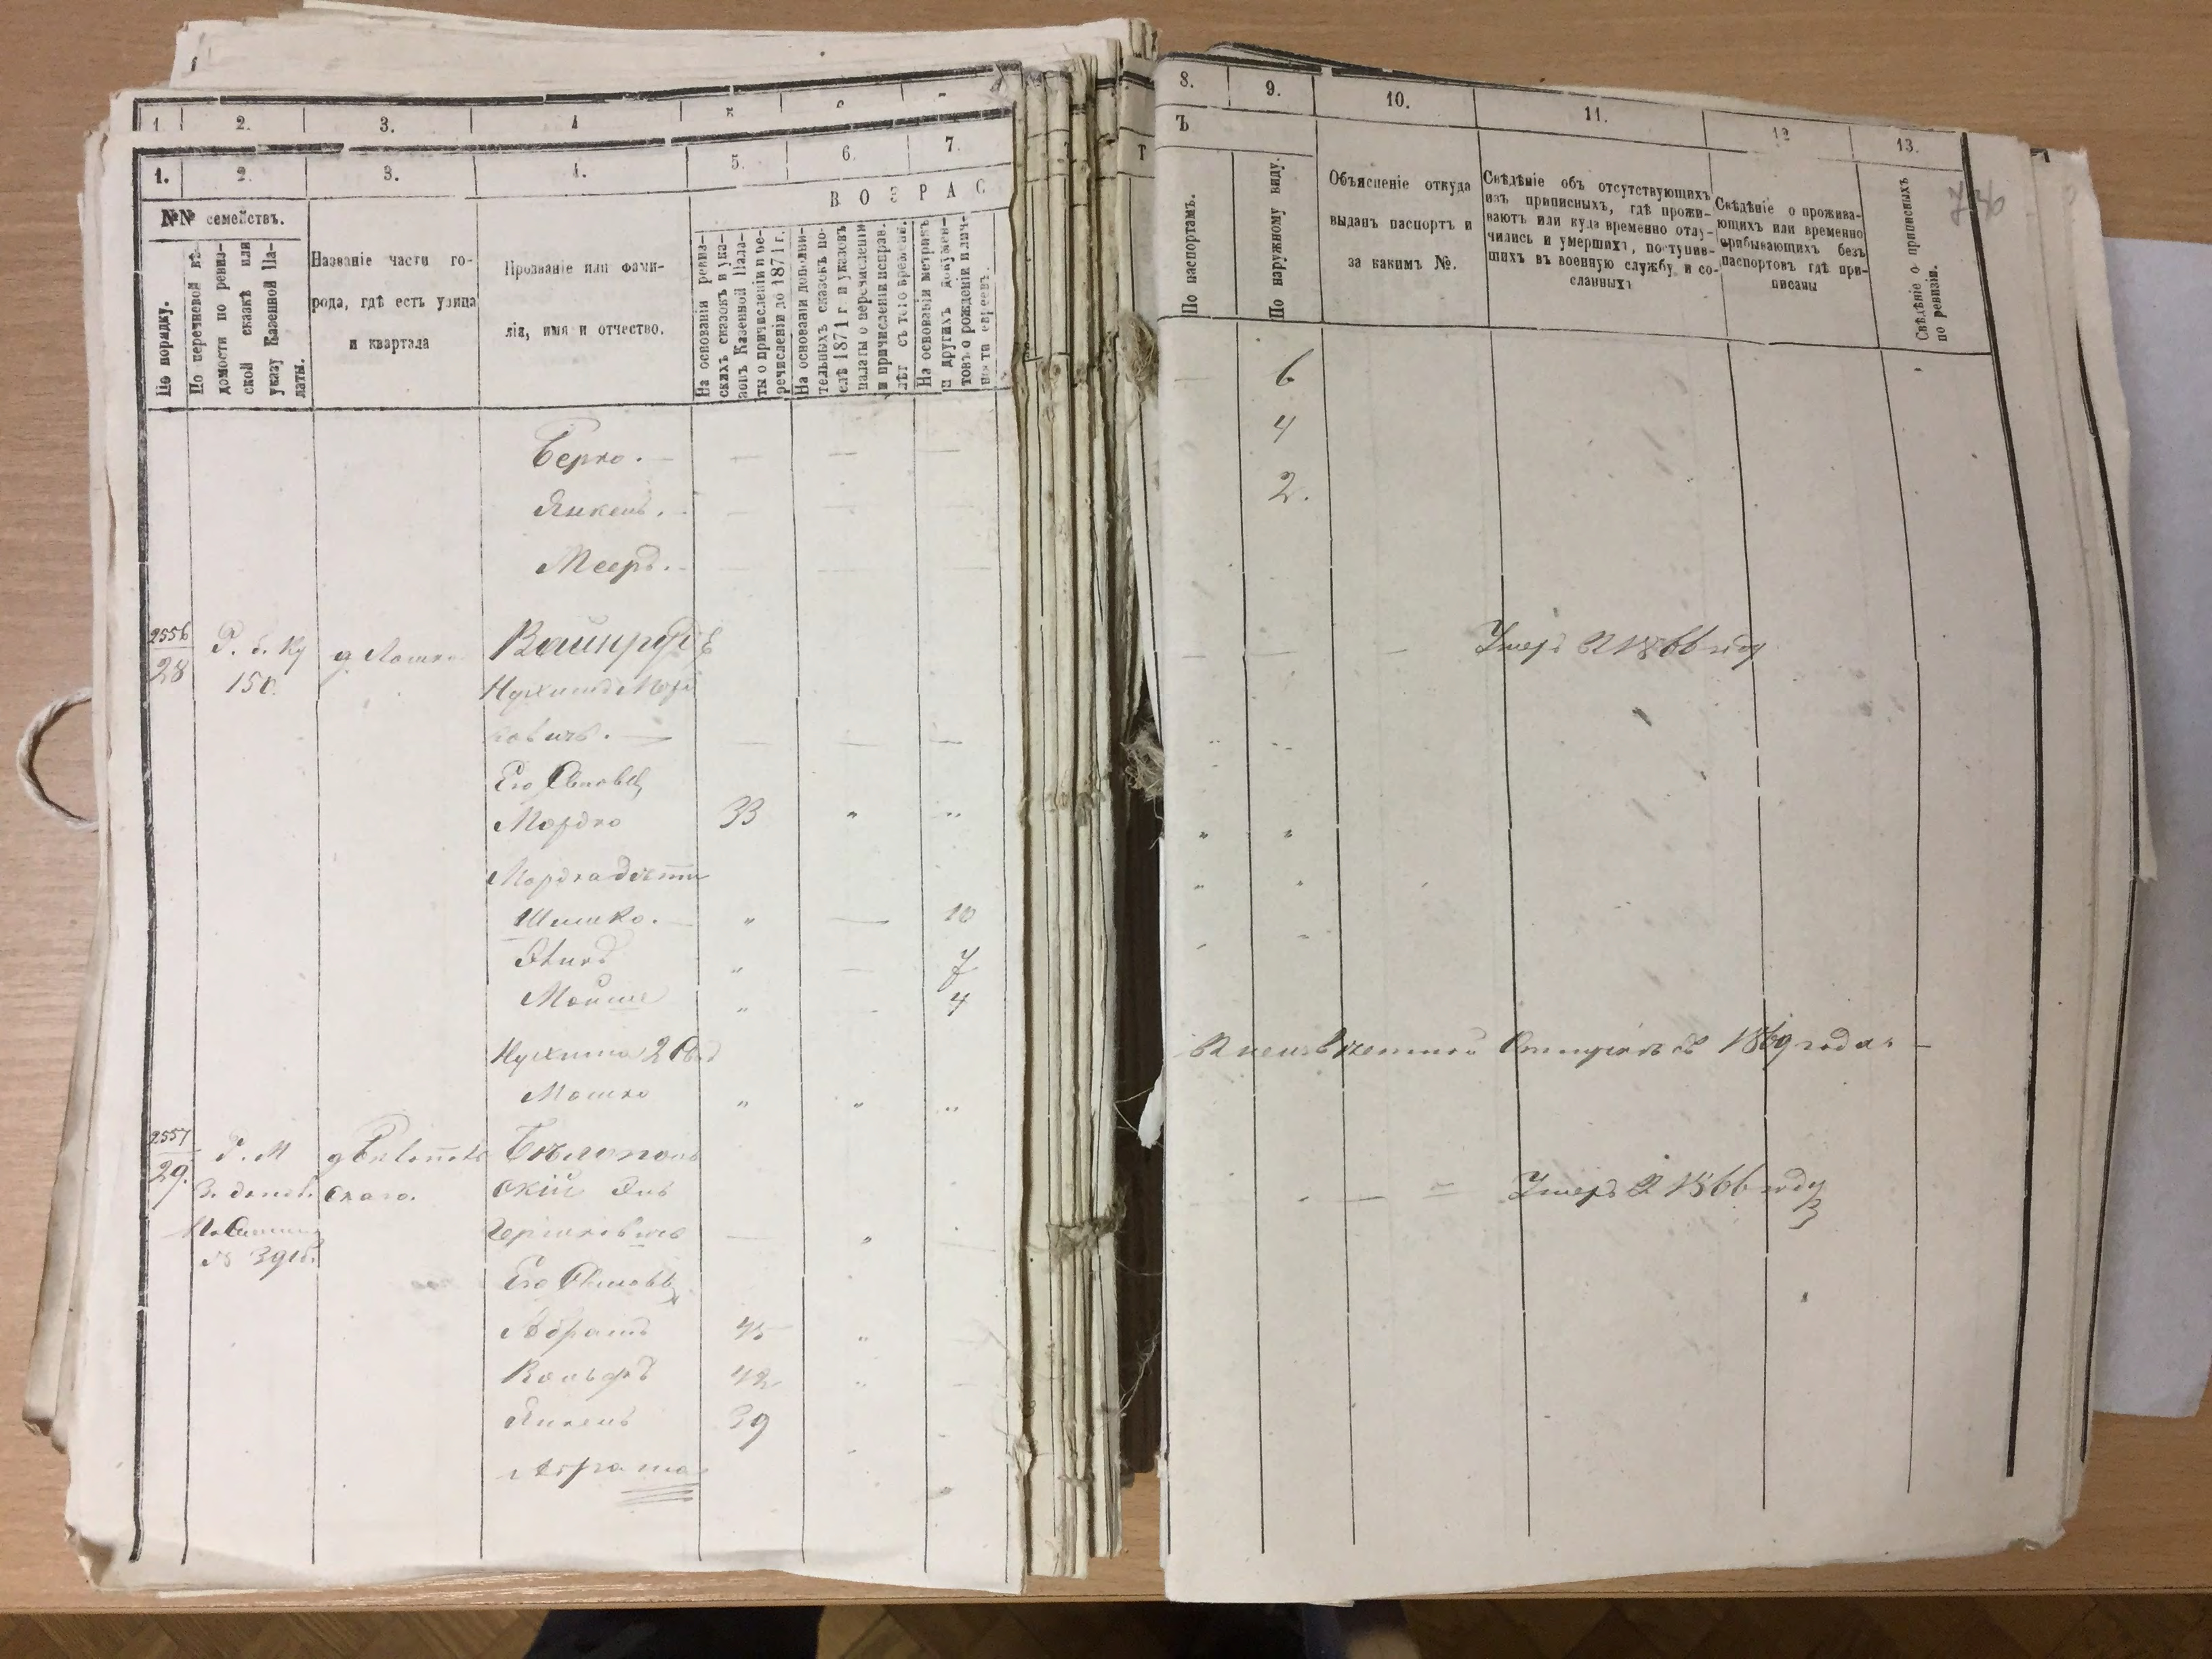 1. 2. 3. 4 5 6 7
1. 2. 3. 4. 5. 6. 7.
№№ семействъ.
В О З Р А С
По порядку.
По перечневой вѣ-
домости по ревиз-
ской сказкѣ или
указу Казенной Па-
латы.
Названіе части го-
рода, гдѣ есть улица
и квартала
Прозваніе или фами-
лія, имя и отчество.
На основаніи ревиз-
скихъ сказокъ и ука-
зовъ Казенной Пала-
ты о причисленіи и пе-
речисленіи до 1871 г.
На основаніи дополни-
тельныхъ сказокъ по-
слѣ 1871 г. и указовъ
палаты о перечисленіи
и причисленіи исправ.
лѣт съ того времени.
На основаніи метрикъ
и других докумен-
товъ о рожденіи и лич-
ности евреевъ.
Берко. — — — —
Янкель. — — — —
Мееръ. — — — —
2556
28
Р. с. Ку
150.
Вайнрубъ
Нухимъ Морд
ковичъ. — — — —
Его Сыновья
Мордко 33 " "
Мордка дѣти
Шимко. — " — 10
" — 7
Мойше " - 4
Нухима 2 Сынъ
Мошко " " "
2557
29.
Р. М
3. допол.
№ 391б.
скаго.
Бѣлополь
скій
Гершковичъ — " —
Его Сыновья
Абрамъ 45 "
Вольфъ 42 " —
Янкель 39
Абрама
8. 9. 10. 11. 12 13.
Ъ
По паспортамъ.
По наружному виду.
Объясненіе откуда
выданъ паспортъ и
за какимъ №.
Свѣдѣніе объ отсутствующихъ
изъ приписныхъ, гдѣ прожи-
ваютъ или куда временно отлу-
чились и умершихъ, поступив-
шихъ въ военную службу и со-
сланныхъ
Свѣдѣніе о прожива-
ющихъ или временно
прибывающихъ безъ
паспортовъ гдѣ при-
писаны
Свѣдѣніе о приписныхъ
по ревизіи.
— 6
4
2.
— — — Умеръ въ 1866 году
" "
Въ неизвѣстной Отлучкѣ съ 1869 года. —
— = Умеръ въ 1866 году